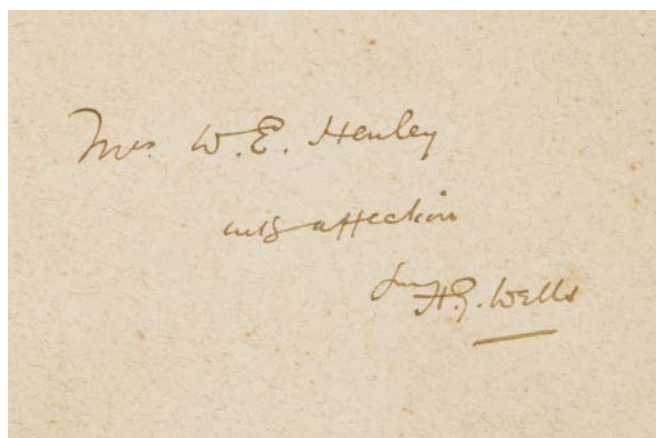 Mrs W.E. Henley
with affection
from H.G. Wells